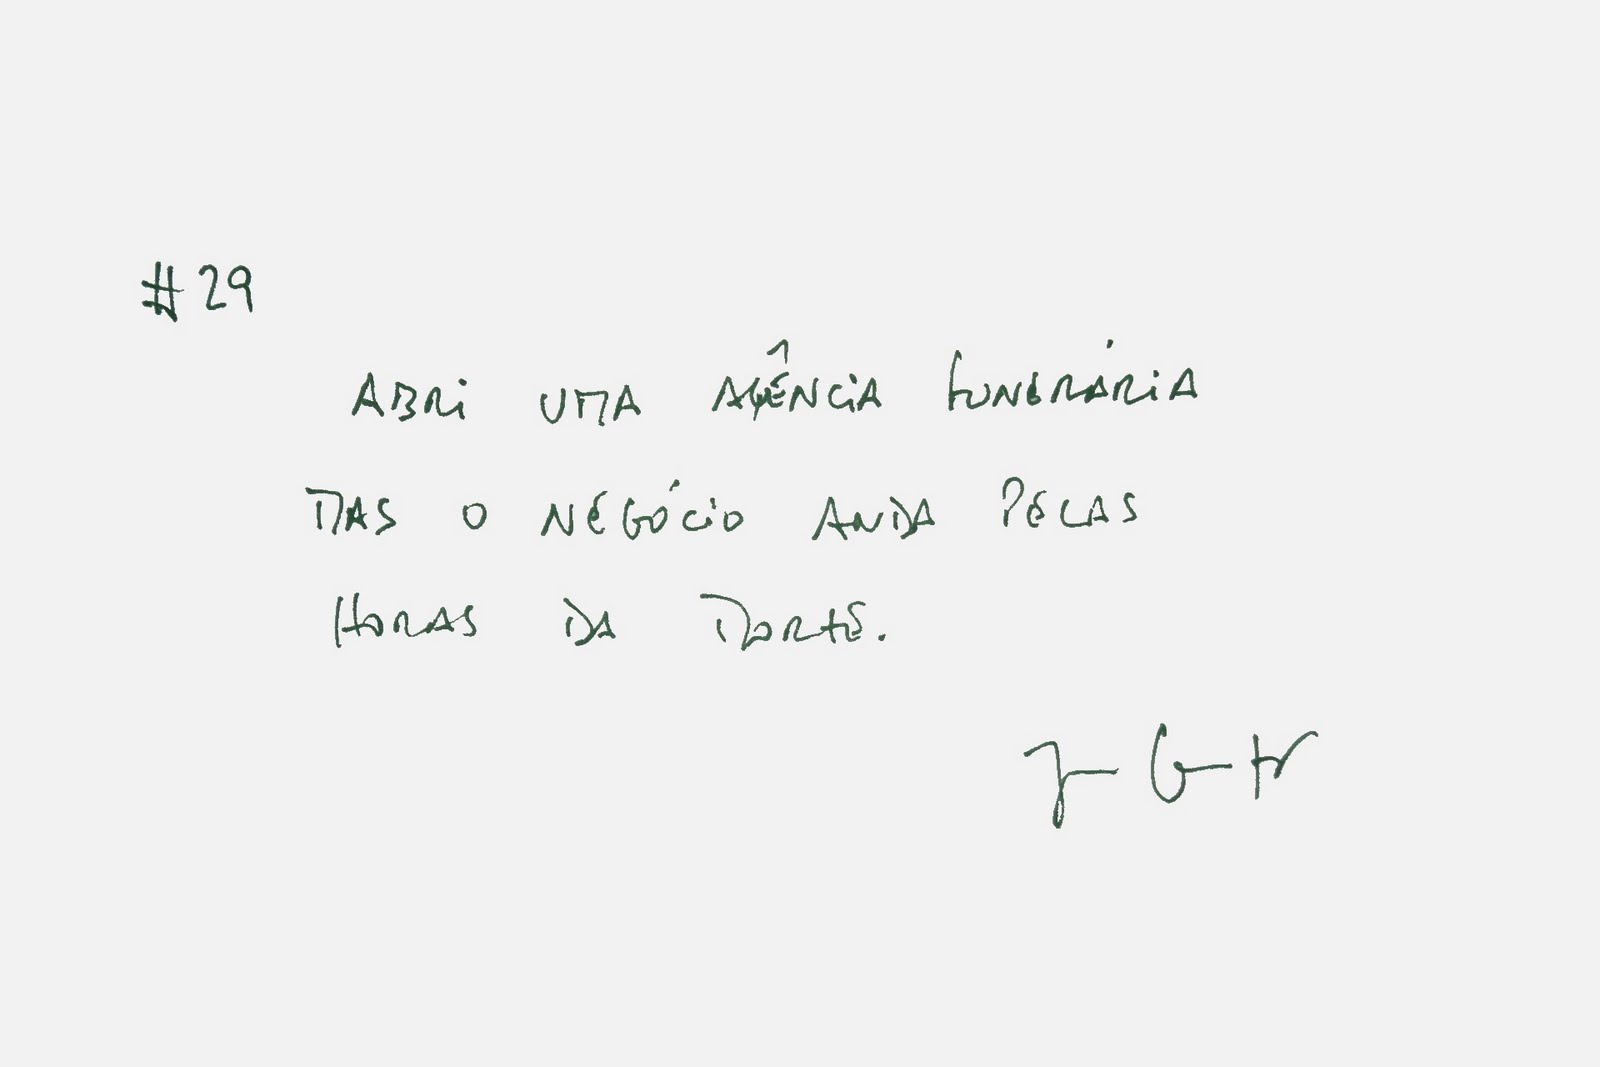 #29
ABRI UMA AGÊNCIA FUNERÁRIA
MAS O NEGÓCIO ANDA PELAS
HORAS DA MORTE.